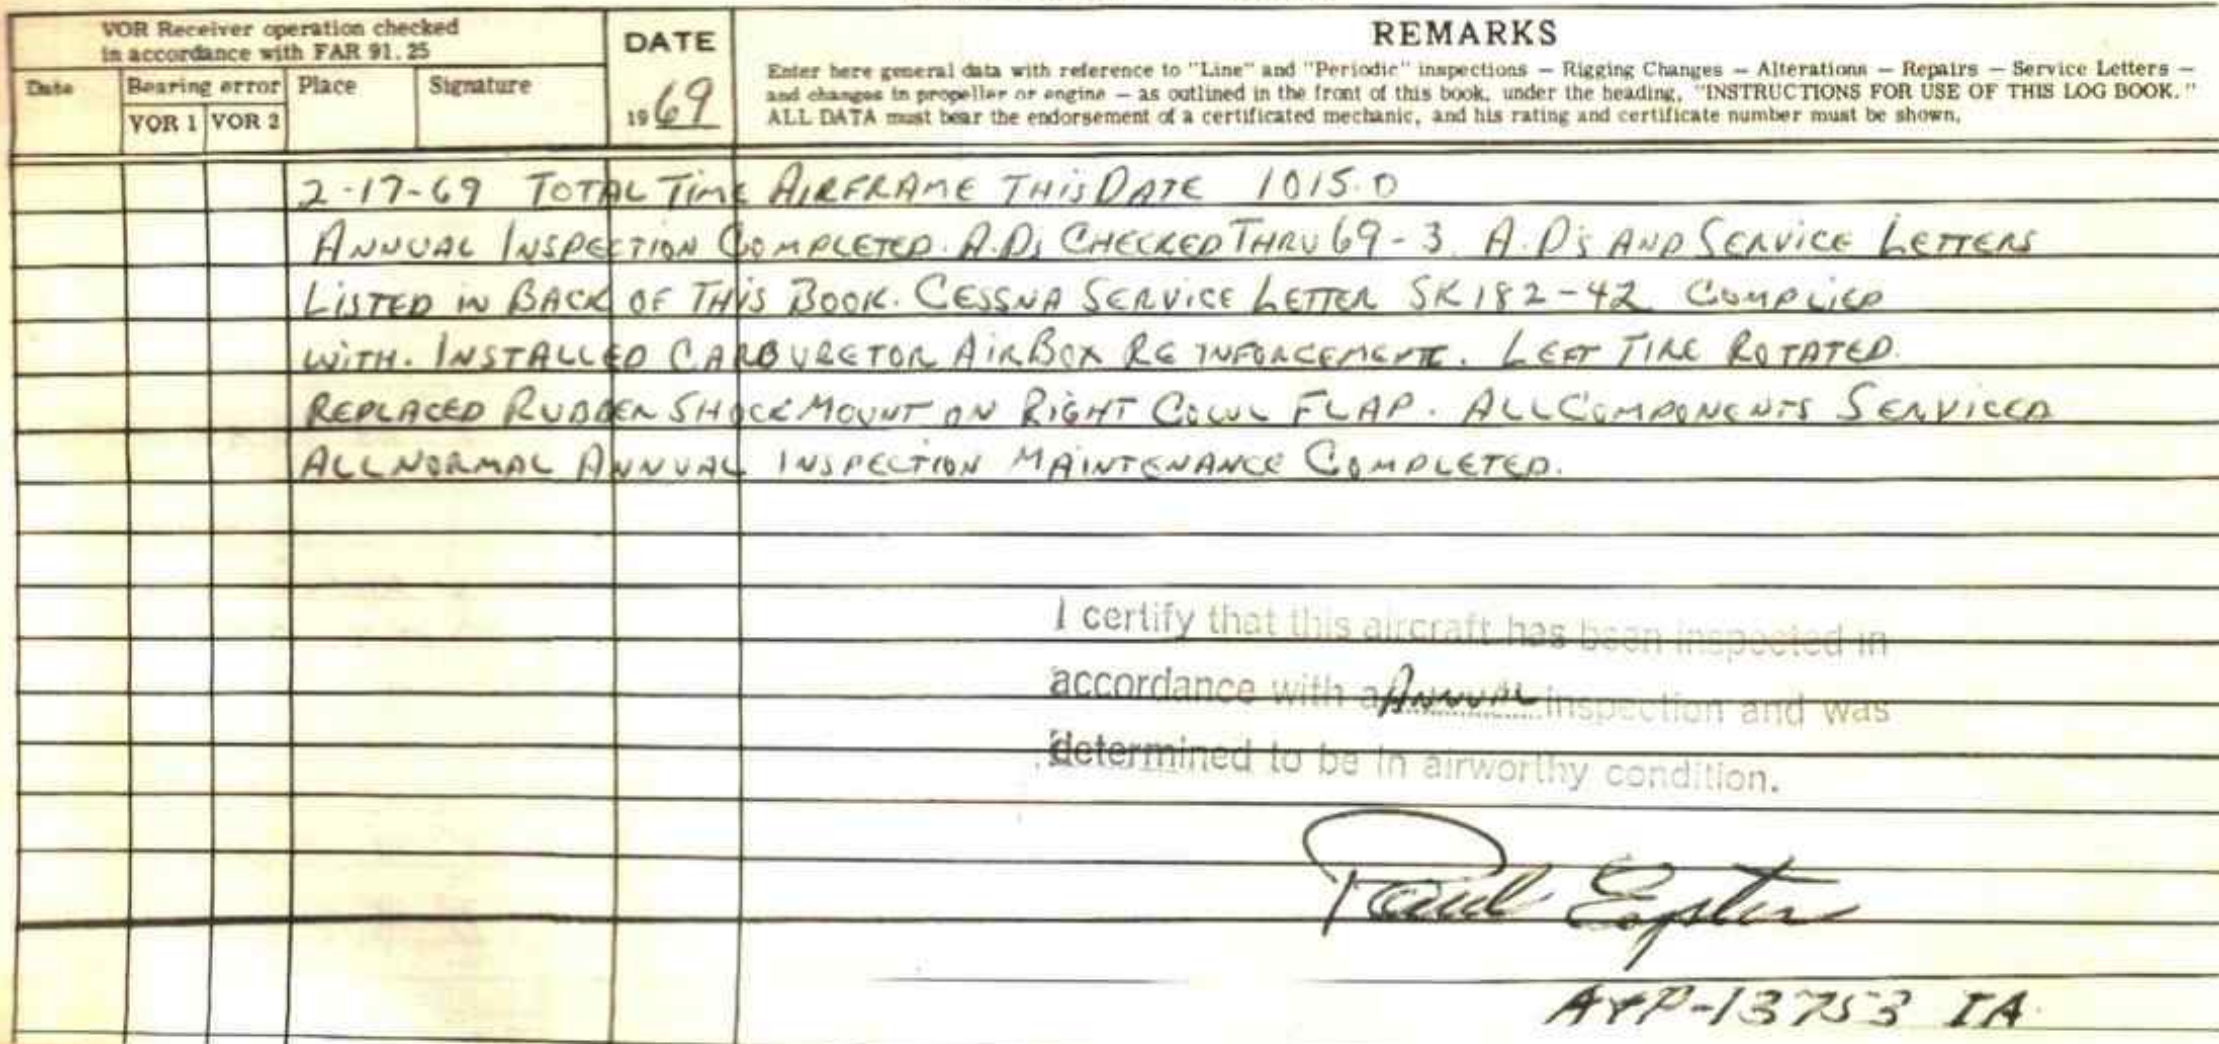 VOR Receiver operation checked
in accordance with FAR 91.25
DATE
REMARKS
Date
Bearing error
Place
Signature
VOR 1
VOR 2
1969
Enter here general data with reference to "Line" and "Periodic" inspections — Rigging Changes — Alterations — Repairs — Service Letters —
and changes in propeller or engine — as outlined in the front of this book, under the heading, "INSTRUCTIONS FOR USE OF THIS LOG BOOK."
ALL DATA must bear the endorsement of a certificated mechanic, and his rating and certificate number must be shown.
2-17-69 TOTAL TIME AIRFRAME THIS DATE 1015.0
ANNUAL INSPECTION COMPLETED. A.D's CHECKED THRU 69-3. A.D's AND SERVICE LETTERS
LISTED IN BACK OF THIS BOOK. CESSNA SERVICE LETTER SK182-42 COMPLIED
WITH. INSTALLED CARBURETOR AIRBOX REINFORCEMENT. LEFT TIRE ROTATED.
REPLACED RUBBER SHOCK MOUNT ON RIGHT COWL FLAP. ALL COMPONENTS SERVICED
ALL NORMAL ANNUAL INSPECTION MAINTENANCE COMPLETED.
I certify that this aircraft has been inspected in
accordance with a ANNUAL inspection and was
determined to be in airworthy condition.
Paul
A&P-13753 IA